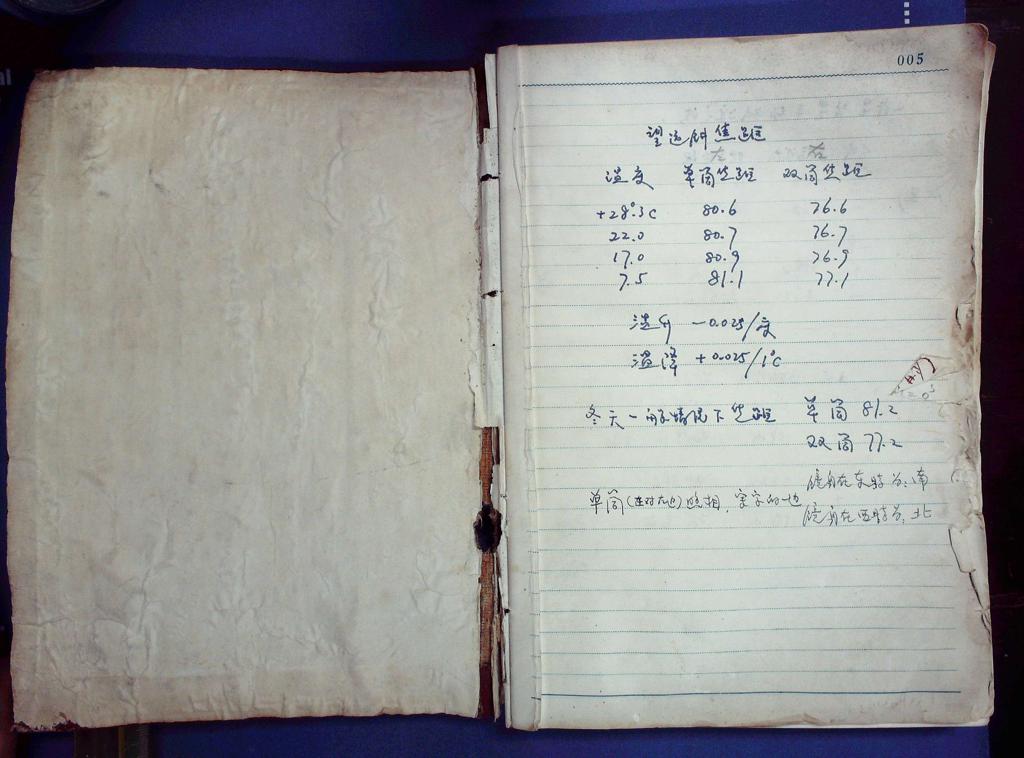 005
望远镜焦距
温度 单筒焦距 双筒焦距
右 左
+28°.3C 80.6 76.6
22.0 80.7 76.7
17.0 80.9 76.9
7.5 81.1 77.1
温升 -0.025/度
温降 +0.025/1°C
冬天一般情况下焦距 单筒 81.2
双筒 77.2
镜筒在东时为:南
单筒(在对左边)照相,字的一边
镜筒在西时为:北